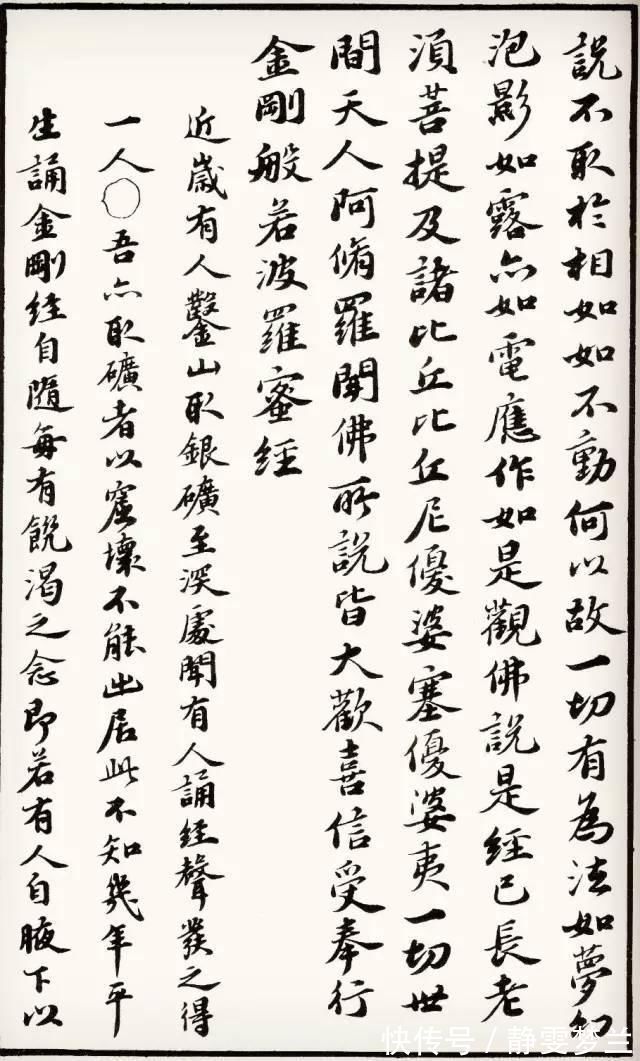 說不取於相如如不動何以故一切有為法如夢幻
泡影如露亦如電應作如是觀佛說是經已長老
須菩提及諸比丘比丘尼優婆塞優婆夷一切世
間天人阿脩羅聞佛所說皆大歡喜信受奉行
金剛般若波羅蜜經
近歲有人鑿山取銀礦至深處聞有人誦經聲發之得
一人〇吾亦取礦者以窟壞不能出居此不知幾年平
生誦金剛經自隨每有饑渴之念即若有人自腋下以
快传号/静雯梦兰